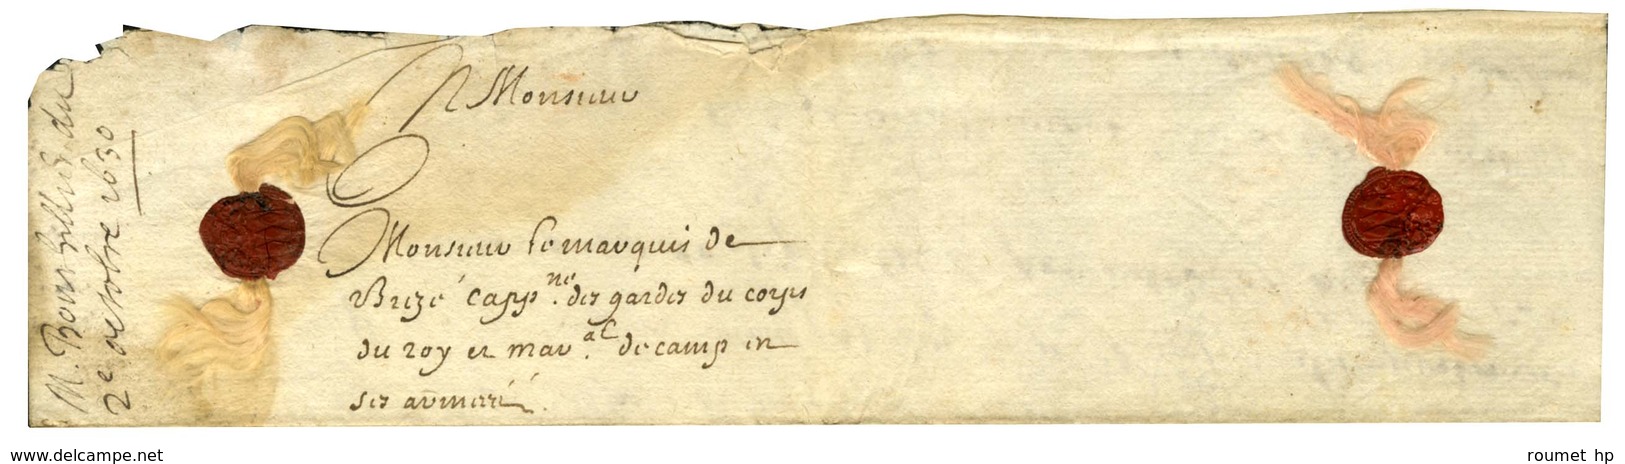 M. Bouthillier du
2e octobre 1630
A Monsieur
Monsieur le marquis de
Brezé capp.ne des gardes du corps
du roy et mar.al de camp en
ses armées.
delcampe.net
roumet hp